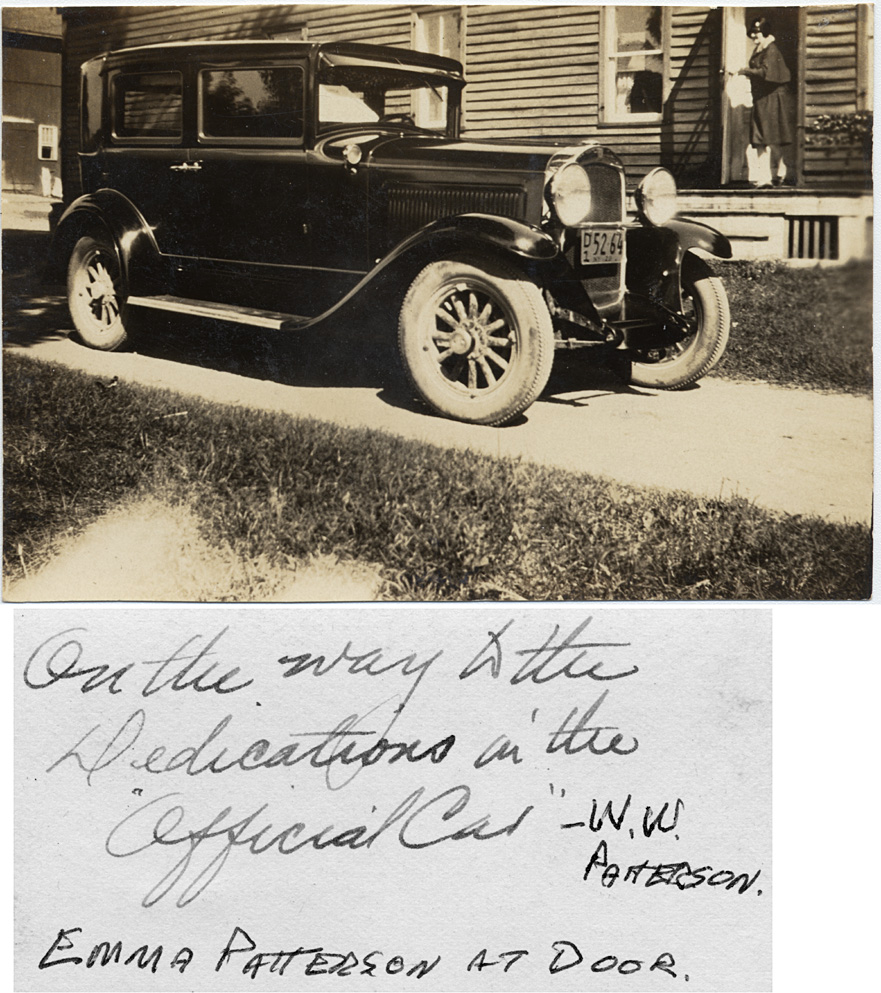 D 52-64
1
On the way to the
Dedications in the
"Official Car" - W.W.
PATTERSON.
EMMA PATTERSON AT DOOR.